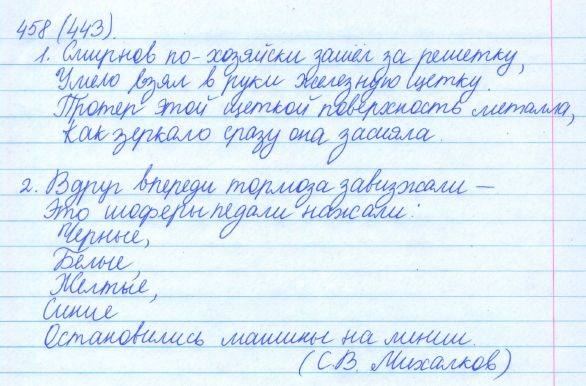 458 (443).
1. Смирнов по-хозяйски зашёл за решетку,
Умело взял в руки железную щетку.
Протер этой щеткой поверхность металла,
Как зеркало сразу она засияла.
2. Вдруг впереди тормоза завизжали –
Это шоферы педали нажали:
Черные,
Белые,
Желтые,
Синие
Остановились машины на линии.
(С.В. Михалков)